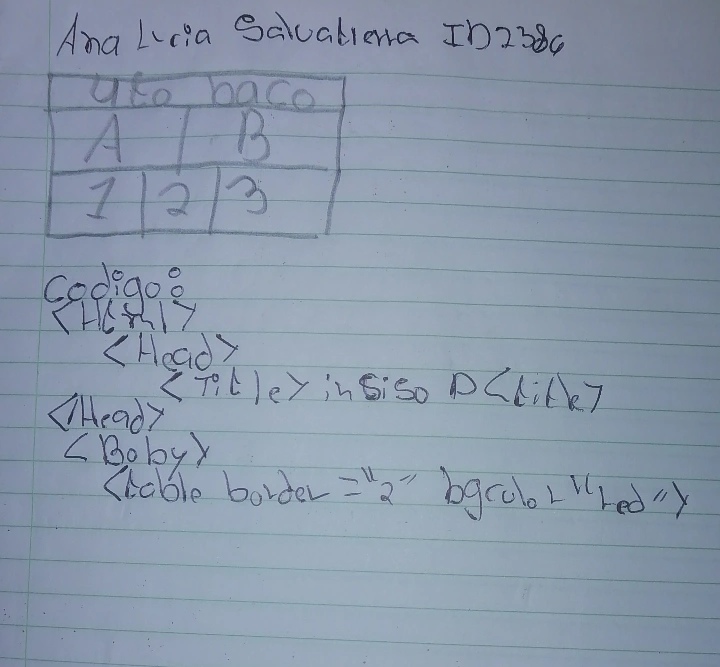 Ana Lucia Salvatierra ID2386
4to baco
A B
1 2 3
codigo:
<Html>
<Head>
<Title> insiso D<title>
</Head>
<Boby>
<table border ="2" bgcolor "red">